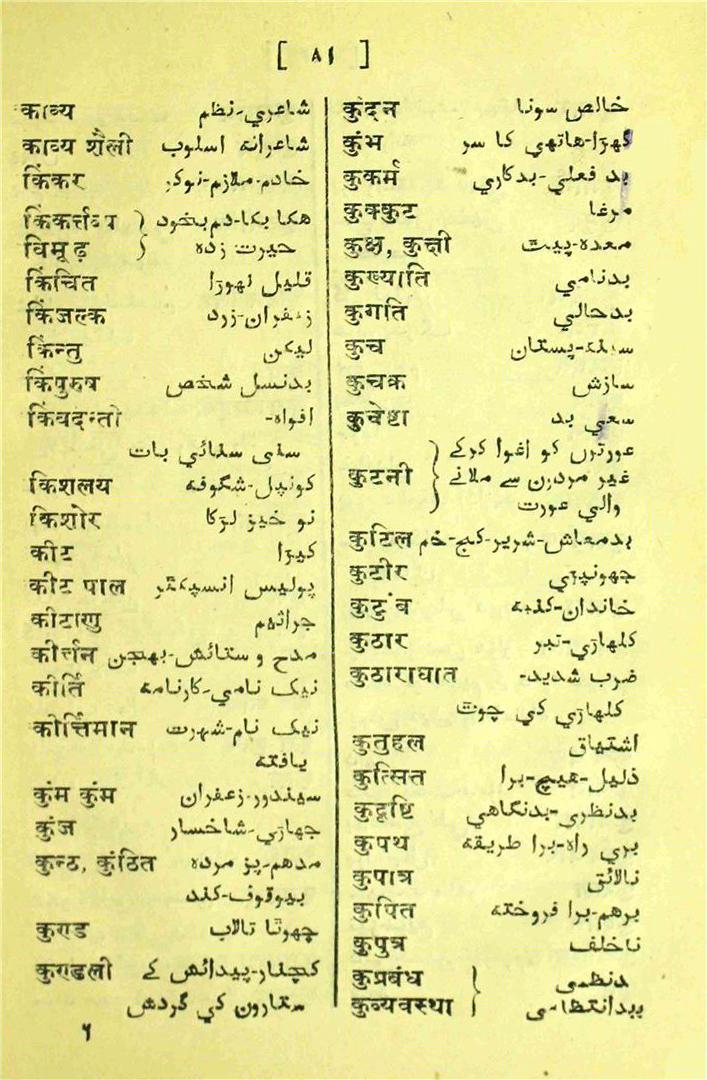 [ ٨١ ]
काव्य شاعري-نظم
काव्य शैली شاعرانه اسلوب
किंकर خادم-ملازم-نوکر
किंकर्त्तव्य } هکا بکا-دم بخود
विमूढ़ } حيرت زده
किंचित قليل تهوڑا
किंजल्क زعفران-زرد
किन्तु ليکن
किंपुरुष بدنسل شخص
किंवदन्ती افواه-
سنی سنائي بات
किशलय کونپل-شگوفه
किशोर نو خيز لڑکا
कीट کيڑا
कीट पाल پوليس انسپکٹر
कीटाणु جراثيم
कीर्त्तन مدح و ستائش-بهجن
कीर्ति نيک نامي-کارنامه
कीर्त्तिमान نيک نام-شہرت
يافته
कुंम कुंम سيندور-زعفران
कुंज جهاڑي-شاخسار
कुन्ठ, कुंठित مدهم-پژ مرده
بيوقوف-کند
कुण्ड چهوٹا تالاب
कुण्डली کچنار-پيدائش کے
ستارون کي گردش
६
कुंदन خالص سونا
कुंभ گهڑا-هاتهي کا سر
कुकर्म بد فعلي-بدکاري
कुक्कुट مرغا
कुक्ष, कुक्षी معده-پيٹ
कुख्याति بدنامي
कुगति بدحالي
कुच سينه-پستان
कुचक سازش
कुचेष्टा سعي بد
عورتوں کو اغوا کرکے
कुटनी } غير مردون سے ملانے
والي عورت
कुटिल بدمعاش-شرير-کج-خم
कुटीर جهونپڑي
कुटुंब خاندان-کنبه
कुठार کلهاڑي-تبر
कुठाराघात ضرب شديد-
کلهاڑي کي چوٹ
कुतुहल اشتياق
कुत्सित ذليل-هيچ-برا
कुदृष्टि بدنظري-بدنگاهي
कुपथ بري راه-برا طريقه
कुपात्र نالائق
कुपित برهم-برا فروخته
कुपुत्र ناخلف
कुप्रबंध } بدنظمي
कुव्यवस्था } بدانتظامي